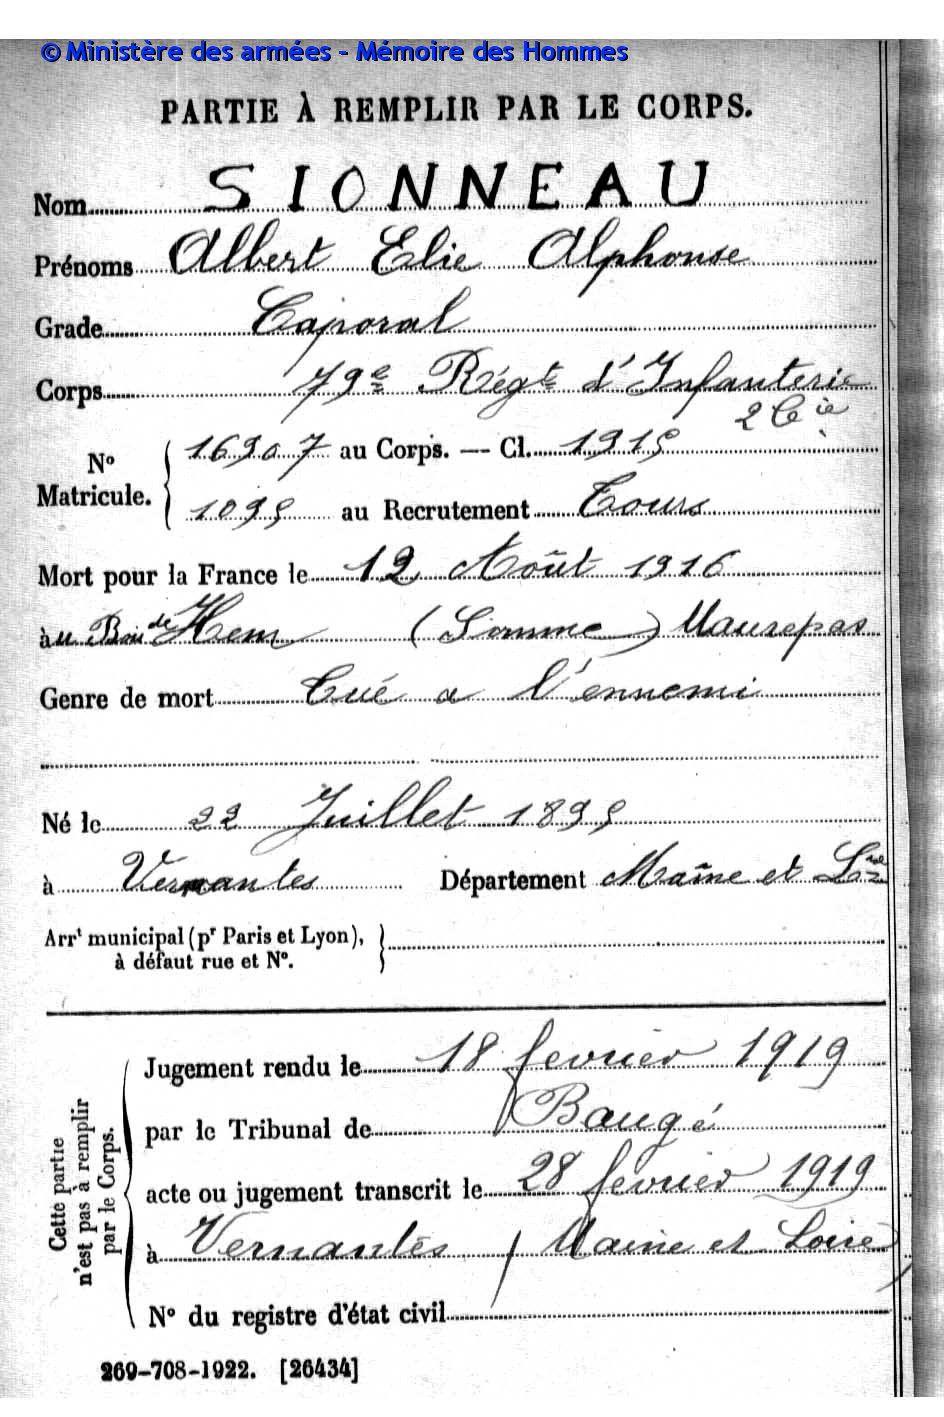 © Ministère des armées - Mémoire des Hommes
PARTIE À REMPLIR PAR LE CORPS.
Nom SIONNEAU
Prénoms Albert Elie Alphonse
Grade Caporal
Corps 79e Régt d'Infanterie
2 Cie
No Matricule. { 16907 au Corps. — Cl. 1915
1095 au Recrutement Tours
Mort pour la France le 12 Août 1916
àu Bois de Hem (Somme) Maurepas
Genre de mort Tué a l'ennemi
Né le 22 Juillet 1895
à Vernantes Département Maine et Lre
Arrt municipal (pr Paris et Lyon), }
à défaut rue et No.
Cette partie
n'est pas à remplir
par le Corps.
Jugement rendu le 18 fevrier 1919
par le Tribunal de Baugé
acte ou jugement transcrit le 28 fevrier 1919
à Vernantes (Maine et Loire)
No du registre d'état civil
269-708-1922. [26434]